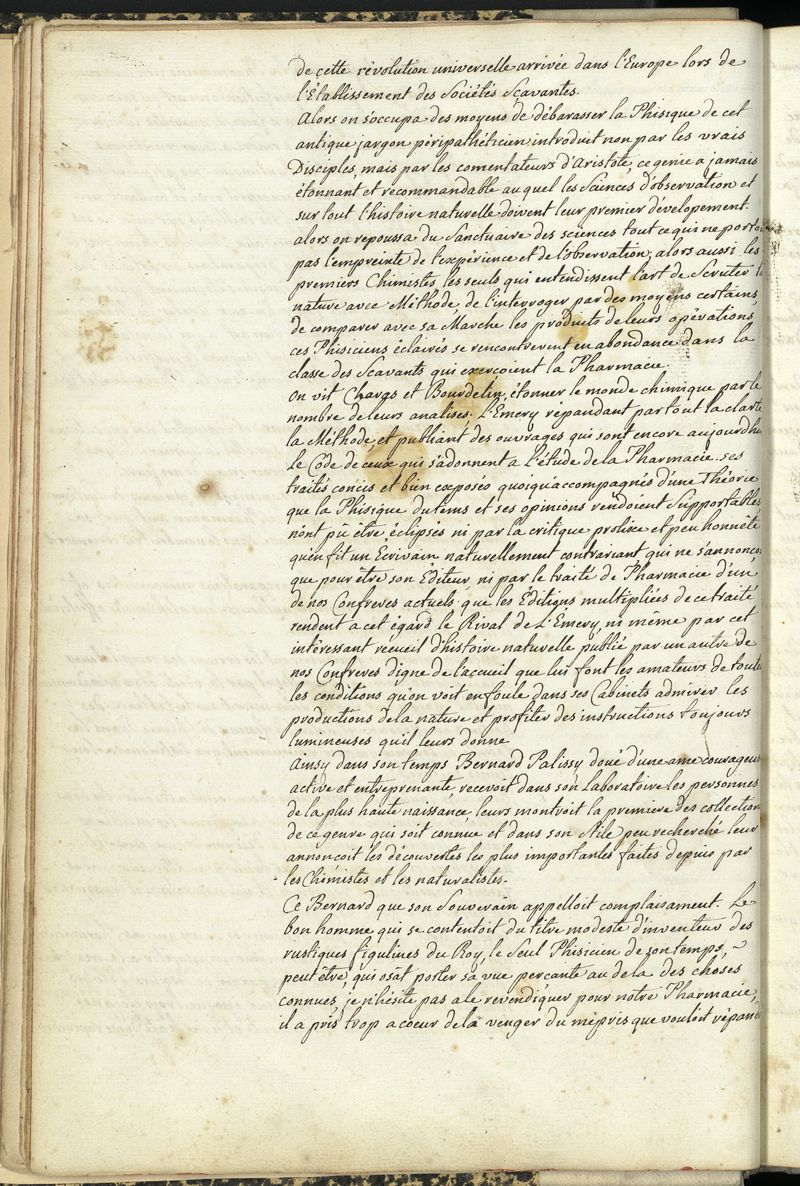 de cette révolution universelle arrivée dans l'Europe lors de
l'Établissement des Sociétés Scavantes.
Alors on s'occupa des moyens de débarasser la Phisique de cet
antique jargon péripathéticien introduit non par les vrais
Disciples, mais par les comentateurs d'Aristote, ce genie a jamais
étonnant et recommandable au quel les Sciences d'observation et
sur tout l'histoire naturelle doivent leur premier dévelopement.
alors on repoussa du Sanctuaire des sciences tout ce qui ne porto
pas l'empreinte de l'expérience et de l'observation; alors aussi les
premiers Chimistes les seuls qui entendissent l'art de Scruter l
nature avec Méthode, de l'interroger par des moyens certains,
de comparer avec sa Marche les produits de leurs opérations,
ces Phisiciens éclairés se rencontrerent en abondance dans la
classe des Scavants qui exercoient la Pharmacie.
On vit Charas et Bourdelin, étonner le monde chimique par le
nombre de leurs analises. L'Emery répandant partout la clarté
la Méthode, et publiant des ouvrages qui sont encore aujourdhu
le Code de ceux qui s'adonnent a l'étude de la Pharmacie. ses
traités concis et bien exposés quoiqu'accompagnés d'une Théorie
que la Phisique du tems et ses opinions rendoient Supportables,
n'ont pû être éclipsés ni par la critique prolixe et peu honnête
qu'en fit un Ecrivain naturellement contrariant qui ne s'annonco
que pour être son Editeur, ni par le traité de Pharmacie d'un
de nos Confreres actuels que les Editions multipliées de ce traité
rendent a cet égard le Rival de L'Emery, ni même par cet
intéressant récueil d'histoire naturelle publié par un autre de
nos Confreres digne de l'accueil que lui font les amateurs de toute
les conditions qu'on voit en foule dans ses Cabinets admirer les
productions de la nature et profiter des instructions toujours
lumineuses qu'il leurs donne.
Ainsy dans son temps Bernard Palissy doué d'une ame courageus
active et entreprenante, recevoit dans son Laboratoire les personnes
de la plus haute naissance, leurs montroit la premiere des collection
de ce genre qui soit connue et dans son Stile peu recherché leur
annoncoit les découvertes les plus importantes faites depuis par
les Chimistes et les naturalistes.
Ce Bernard que son Souverain appelloit complaisament. Le
bon homme qui se contentoit du titre modeste d'inventeur des
rustiques figulines du Roy, le Seul Phisicien de son temps,
peut être, qui osât porter sa vue percante au dela des choses
connues, je n'hésite pas a le revendiquer pour notre Pharmacie,
il a pris trop a coeur de la venger du mépris que vouloit répand